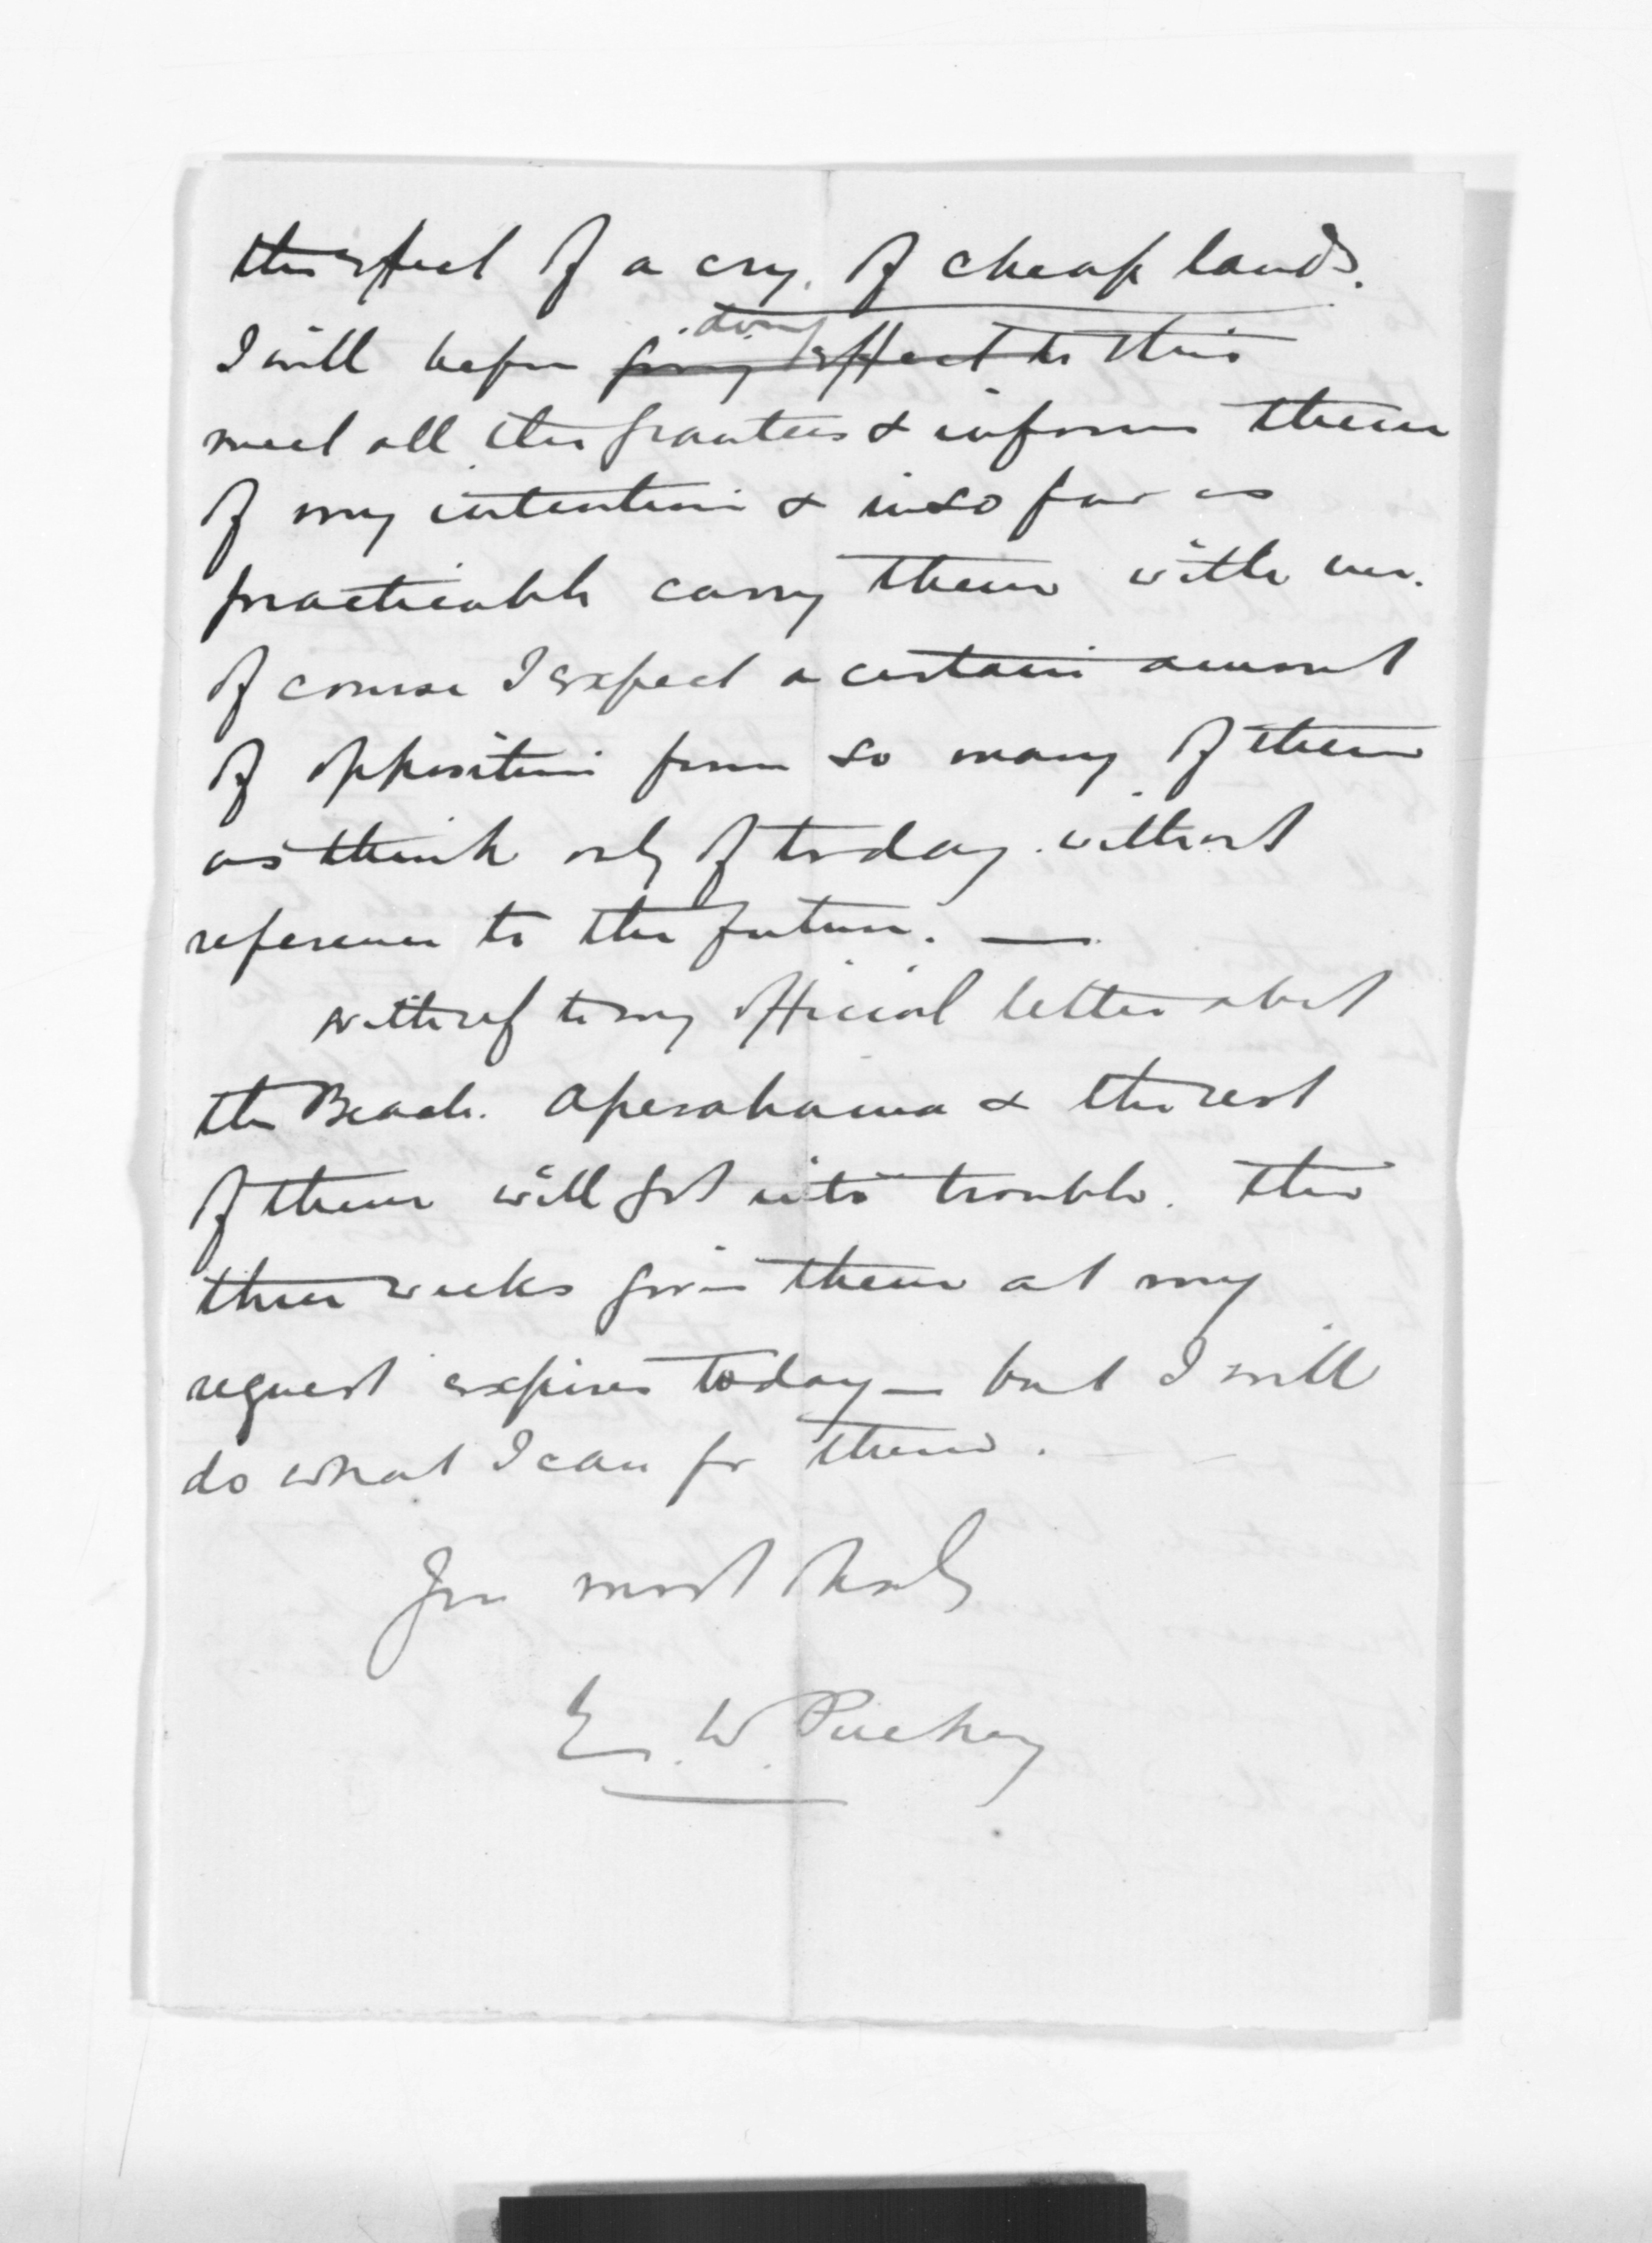 the effect of a cry, of cheap lands.
I will before giving effect to doing this
meet all the grantees & inform them
of my intention & in so far as
practicable carry them with me.
Of course I expect a certain amount
of opposition from so many of them
as think only of today without
reference to the future. —
with ref to my official letter about
the Beach. Aperahama & the rest
of them will get into trouble. The
three weeks given them at my
request expires today — but I will
do what I can for them.
You most truly
E. W. Puckey